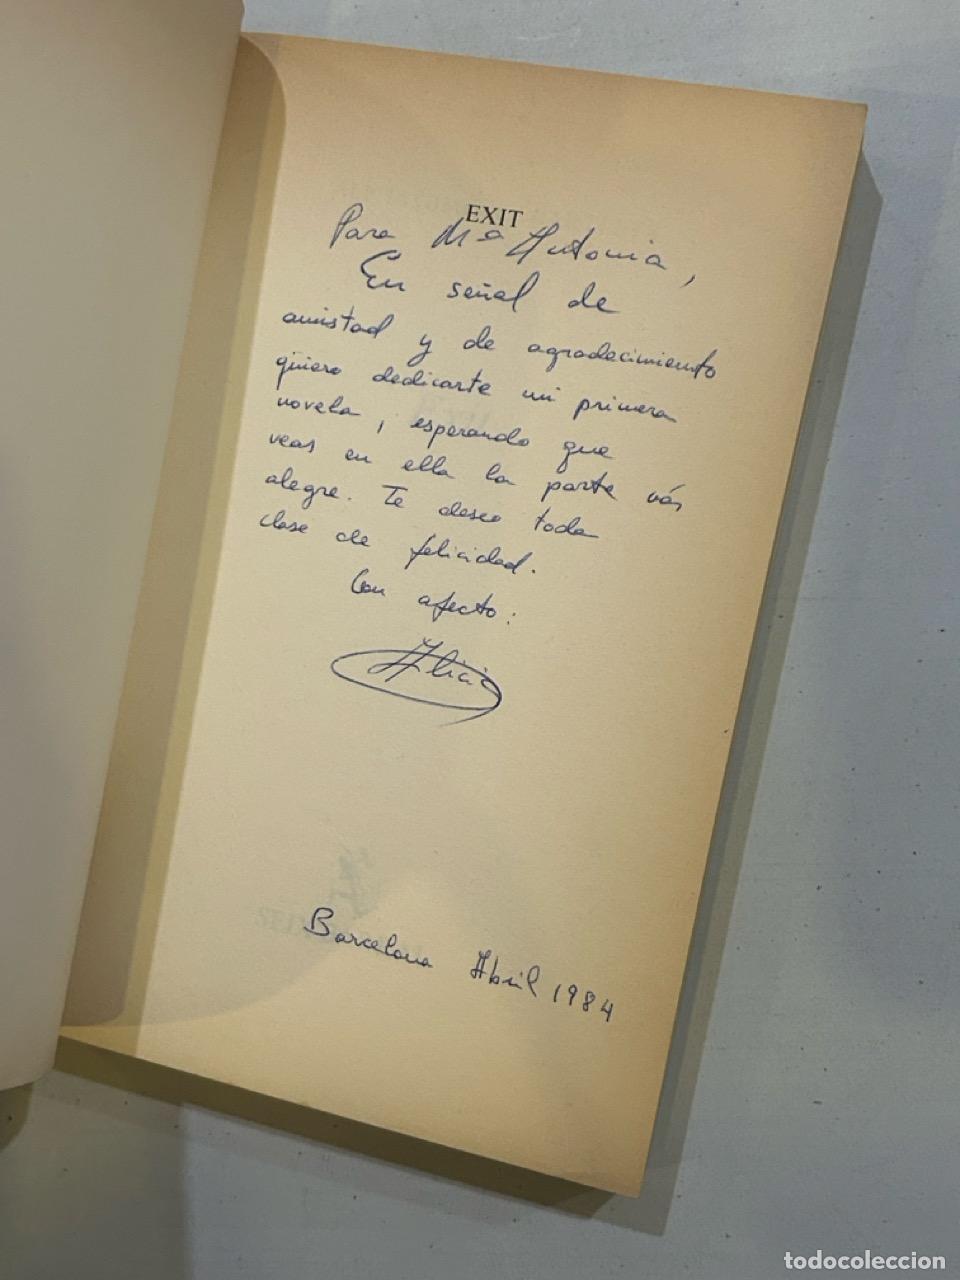 EXIT
Para Mª Antonia,
En señal de
amistad y de agradecimiento
quiero dedicarte mi primera
novela, esperando que
veas en ella la parte más
alegre. Te deseo toda
clase de felicidad.
Con afecto:
Alicia
Barcelona Abril 1984
todocoleccion